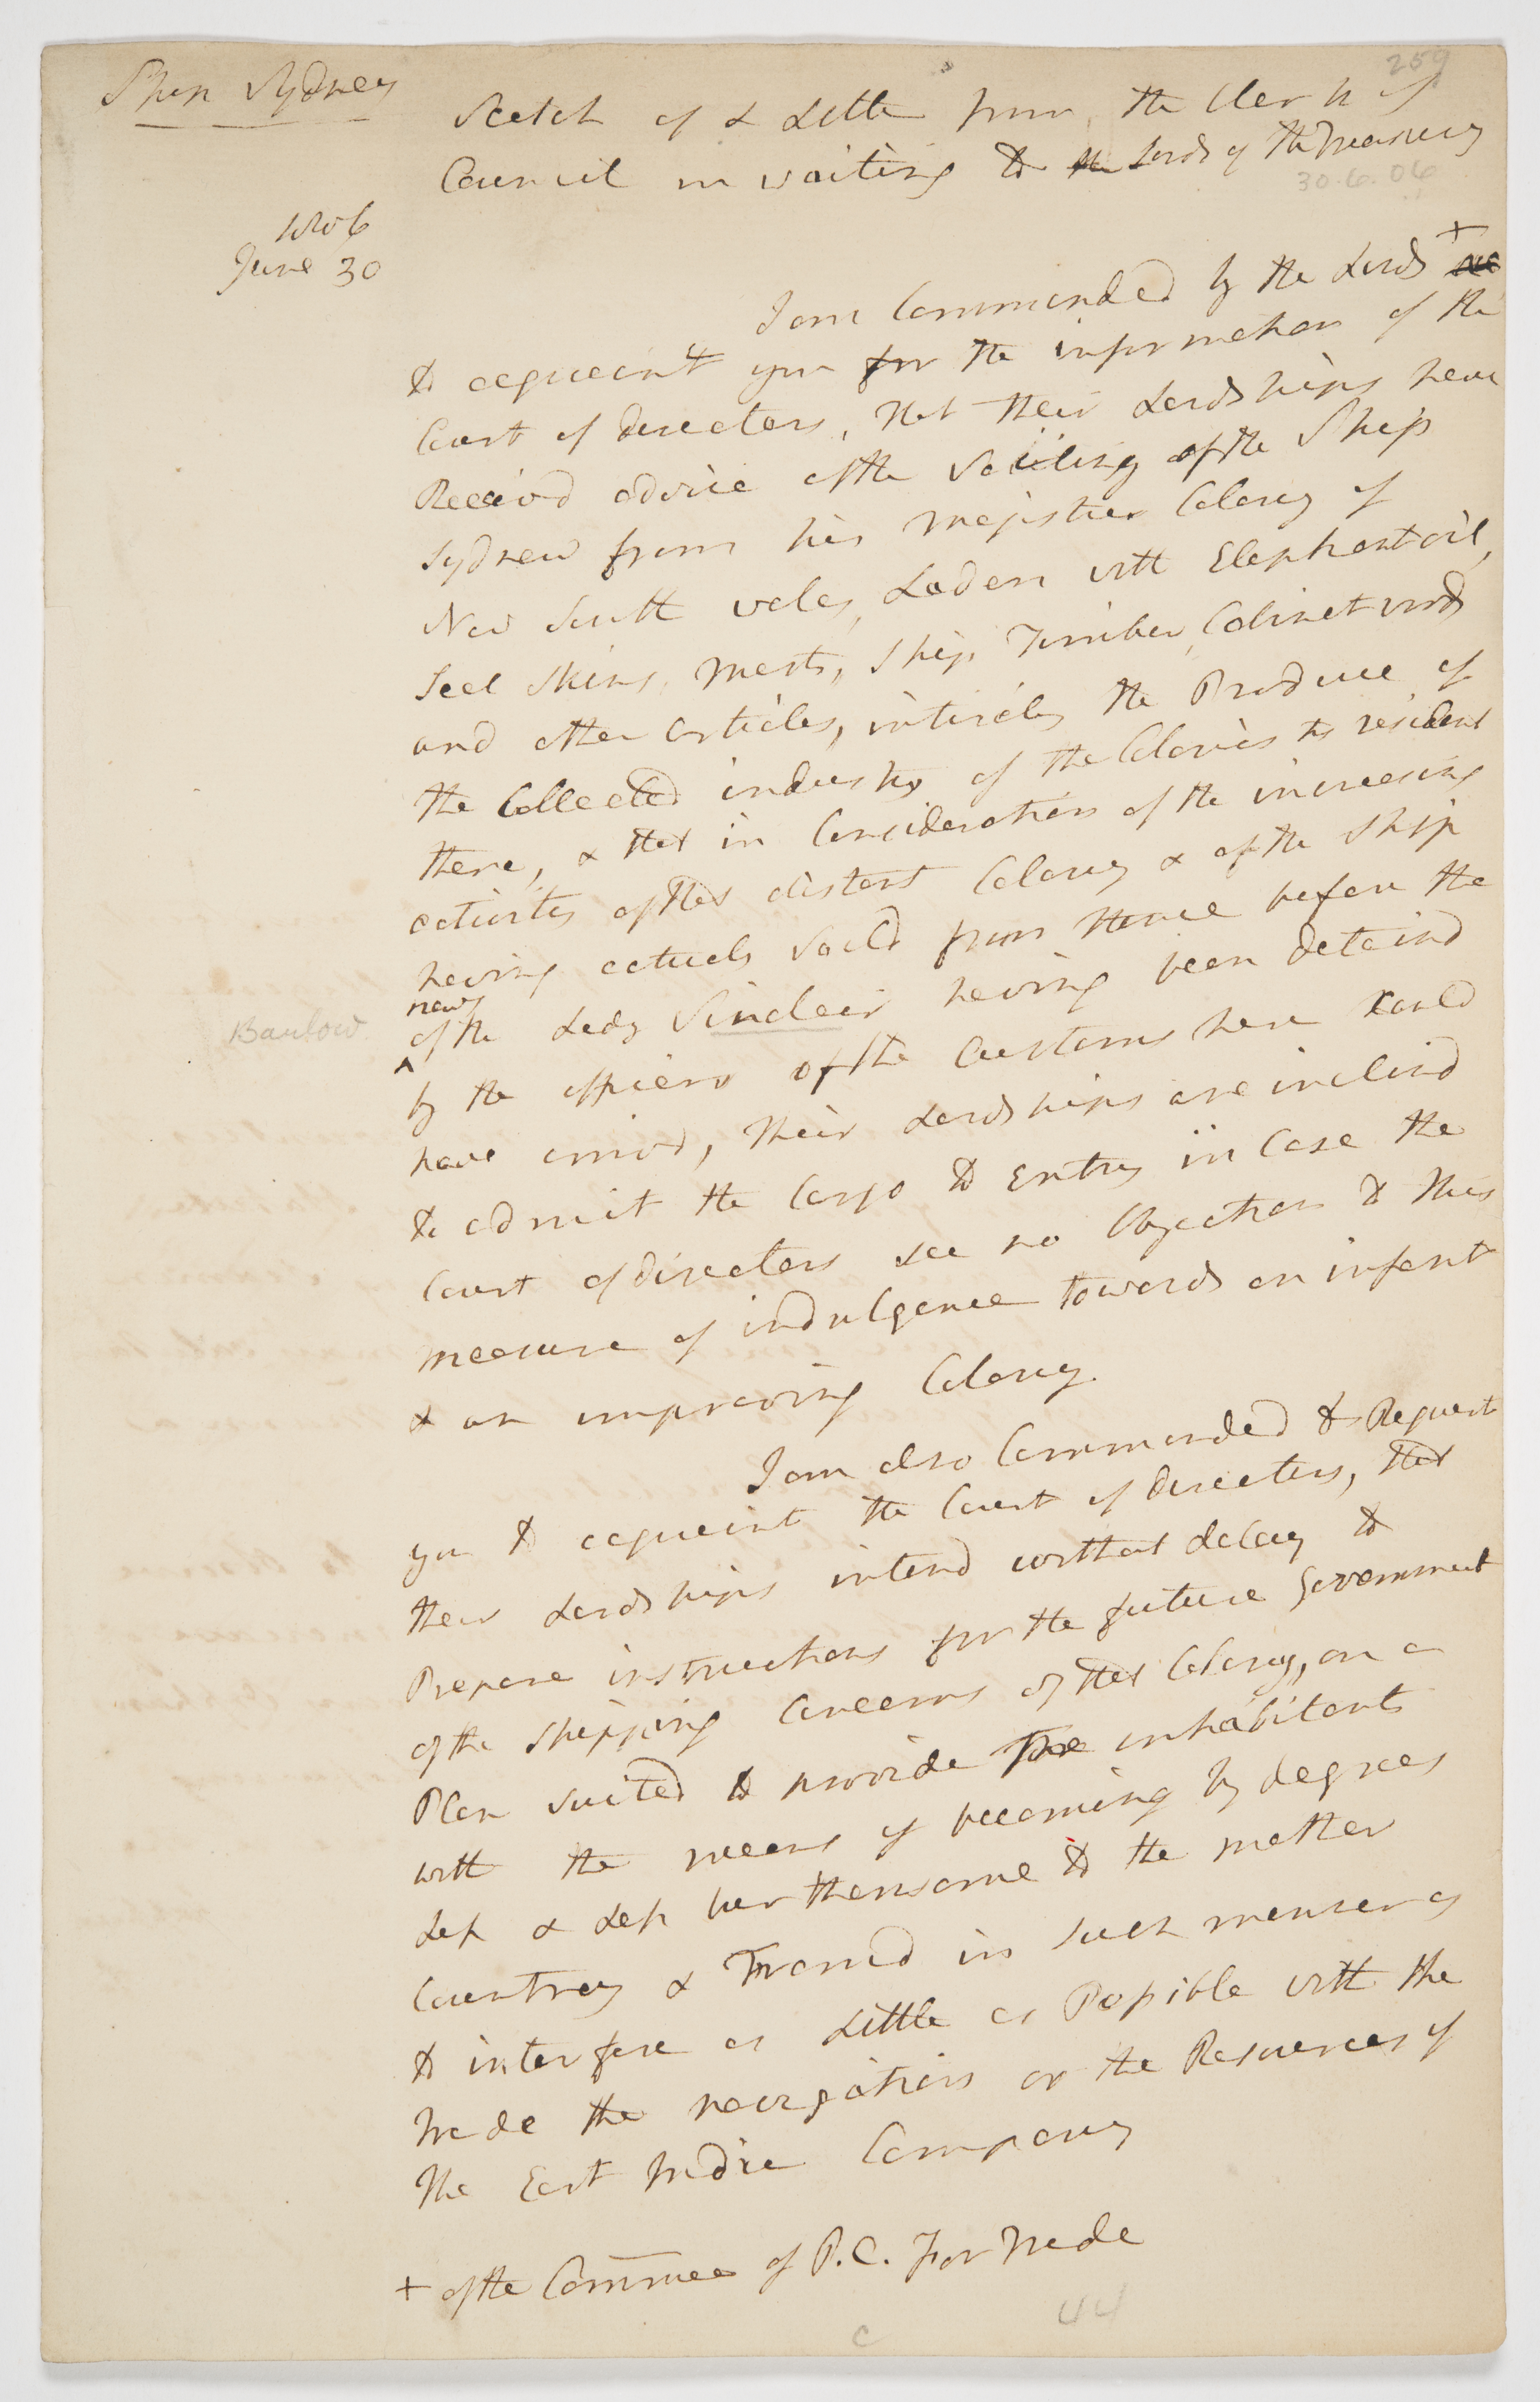 259
Ship Sydney
Scetch of a Letter from the Clerk of
Council in waiting to the Lords of the Treasury
30.6.06
1806
June 30
I am Commanded by the Lords +
to acquaint you for the information of the
Court of directors, that their Lordships have
Receivd advice of the Sailing of the Ship
Sydney from his Majesties Colony of
New South wales, Laden with Elephant oil,
Seal Skins, Masts, Ship Timber, Cabinet wood
and other articles, intirely the Produce of
the Collected industry of the Colonies resident
there, & that in Consideration of the increasing
activity of that distant Colony & of the Ship
having actualy Saild from thence before the
news
of the Lady Sinclair having been detaind
Barlow
by the officers of the Customs here Could
have arrivd, their Lordships are inclind
to admit the Cargo to Entry in Case the
Court of directors see no Objection to this
measure of indulgence towards an infant
& an improving Colony.
I am also Commanded to Request
you to acquaint the Court of directors, that
their Lordships intend without delay to
Prepare instructions for the future Government
of the Shipping Concerns of that Colony, on a
Plan suited to provide the inhabitants
with the means of becoming by degrees
Less & Less burthensome to the mother
Countrey & Framd in such manner as
to interfere as Little as Possible with the
trade the navigation or the Resources of
the East India Company
+ of the Commee of P.C. For trade
44
c